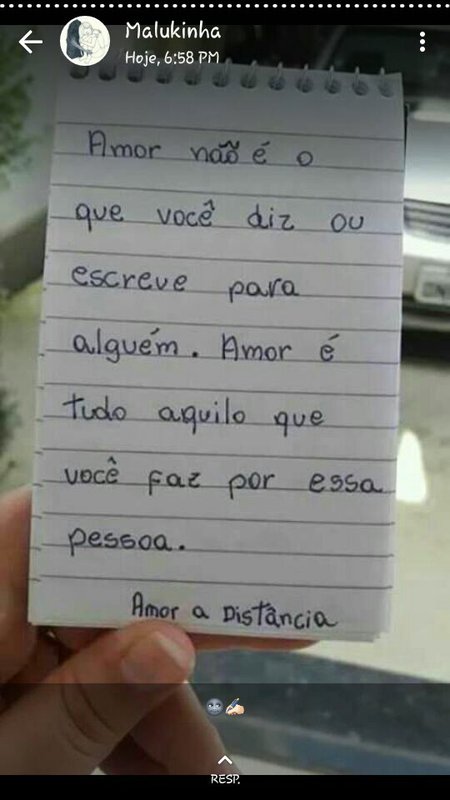 Malukinha
Hoje, 6:58 PM
Amor não é o
que você diz ou
escreve para
alguém. Amor é
tudo aquilo que
você faz por essa
pessoa.
Amor a Distância
RESP.